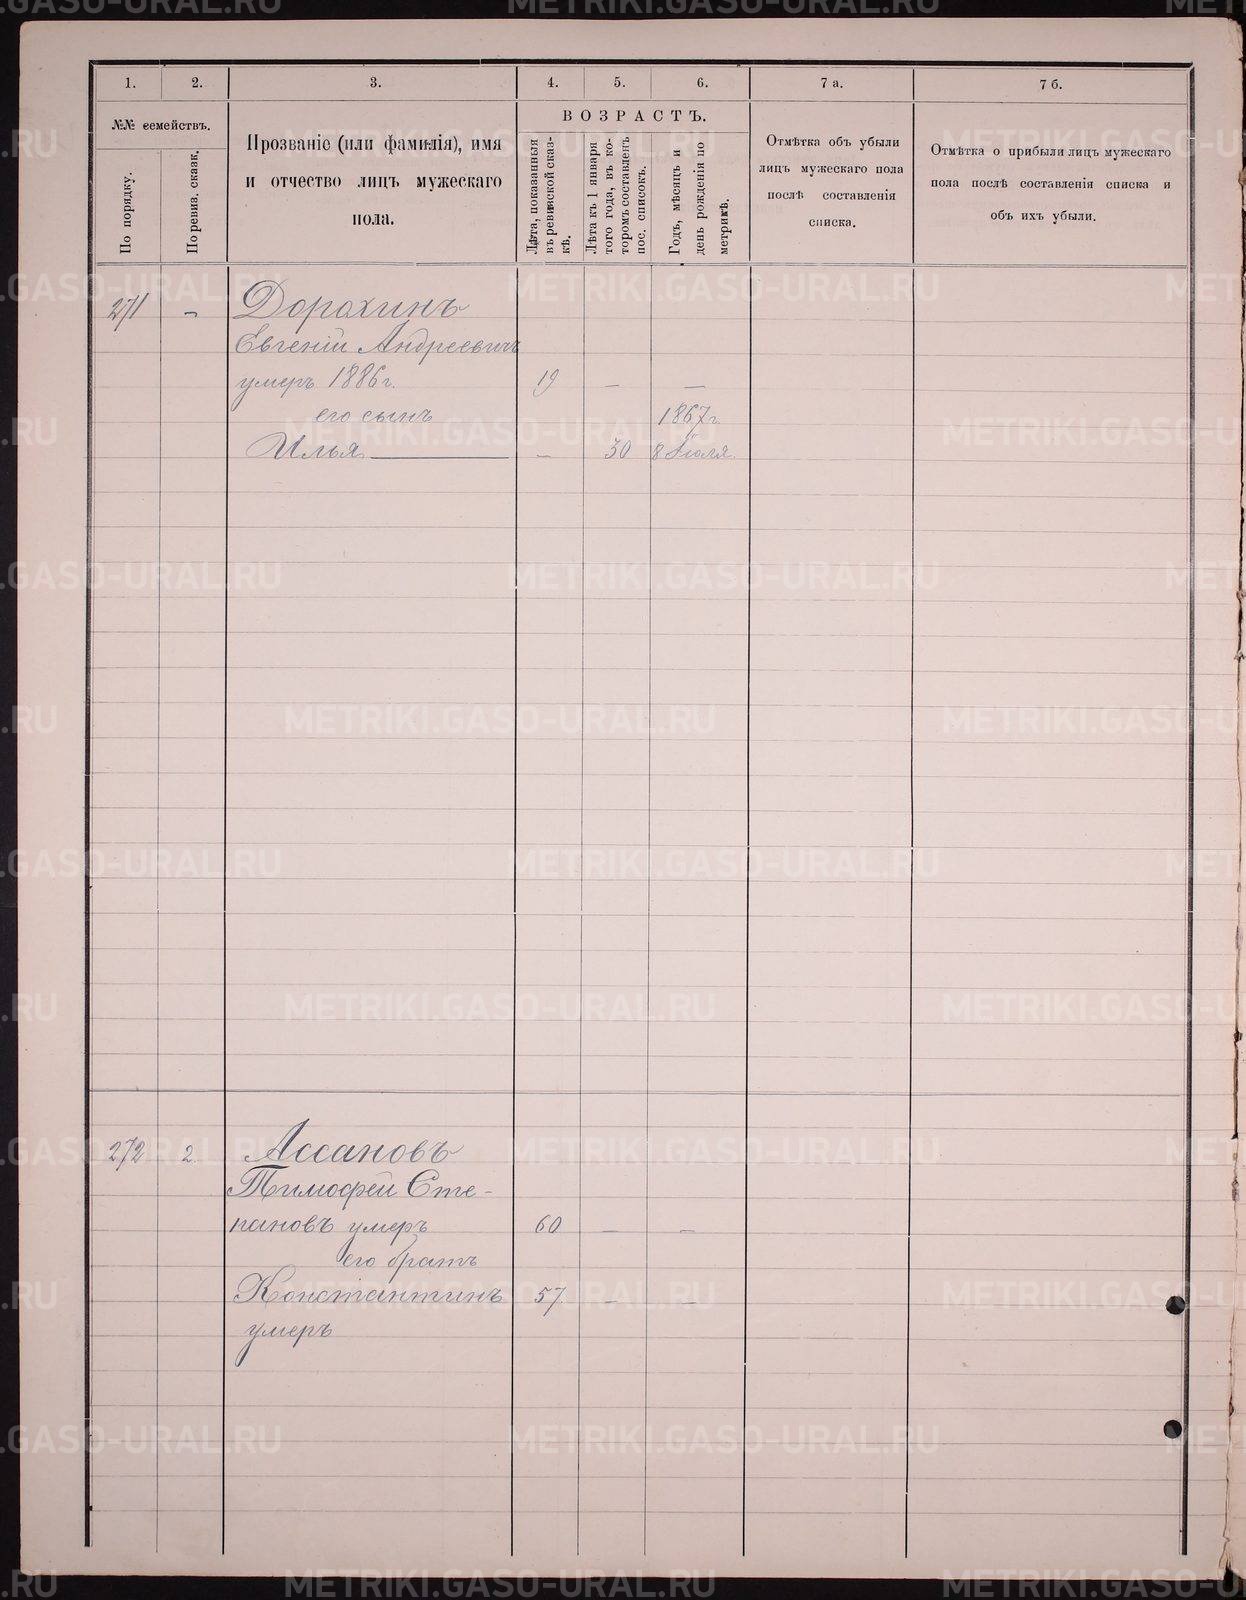 1.
2.
3.
4.
5.
6.
7 а.
7 б.
№№ семействъ.
По порядку.
По ревиз. сказк.
Прозваніе (или фамилія), имя
и отчество лицъ мужескаго
пола.
ВОЗРАСТЪ.
Лѣта, показанныя
въ ревизской сказ-
кѣ.
Лѣта къ 1 января
того года, въ ко-
торомъ составленъ
пос. списокъ.
Годъ, мѣсяцъ и
день рожденія по
метрикѣ.
Отмѣтка объ убыли
лицъ мужескаго пола
послѣ составленія
списка.
Отмѣтка о прибыли лицъ мужескаго
пола послѣ составленія списка и
объ ихъ убыли.
271 – Дорохинъ
Евгеній Андреевичъ
умеръ 1886 г. 19 — —
его сынъ 1867 г.
Илья — — 30 8 Іюля.
272 2. Ассановъ
Тимофей Сте-
пановъ умеръ 60 — —
его братъ
Константинъ 57. — —
умеръ
METRIKI.GASO-URAL.RU